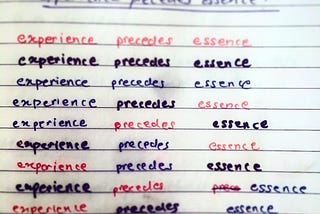 essence.
experience precedes essence
experience precedes essence
experience precedes essence
experience precedes essence
experience precedes essence
experience precedes essence
experience precedes essence
experience precedes essence
experience precedes essence